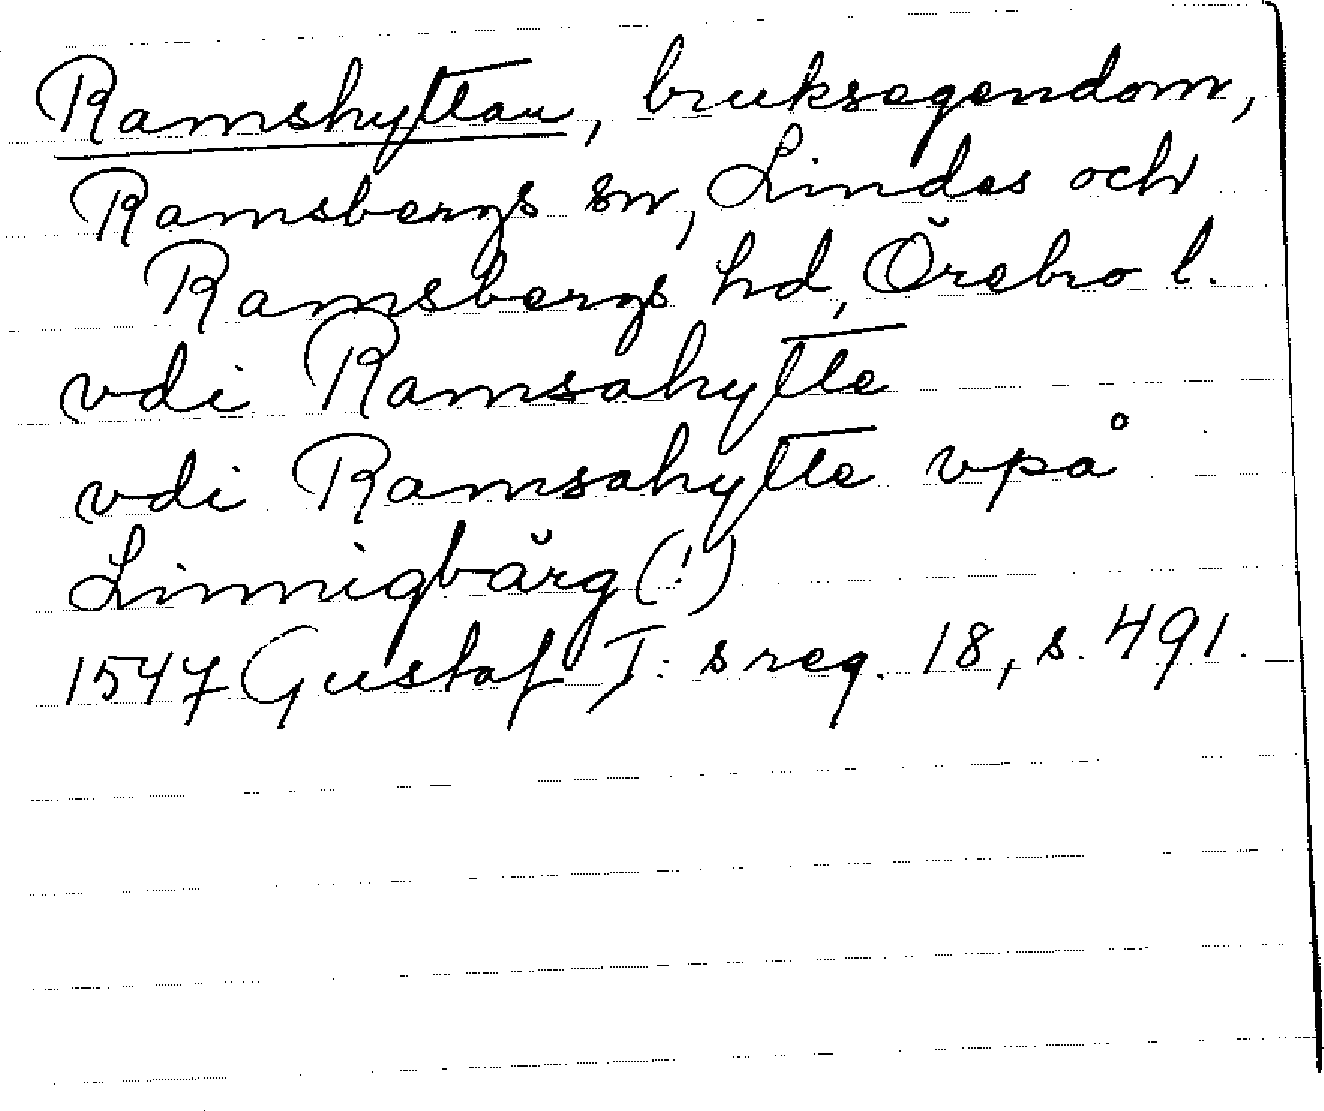 Ramshyttan, bruksegendom,
Ramsbergs sn, Lindes och
Ramsbergs hd, Örebro l.
vdi Ramsahytte
vdi Ramsahytte vpå
Linnigbärg (!)
1547 Gustaf I: s reg. 18, s. 491.